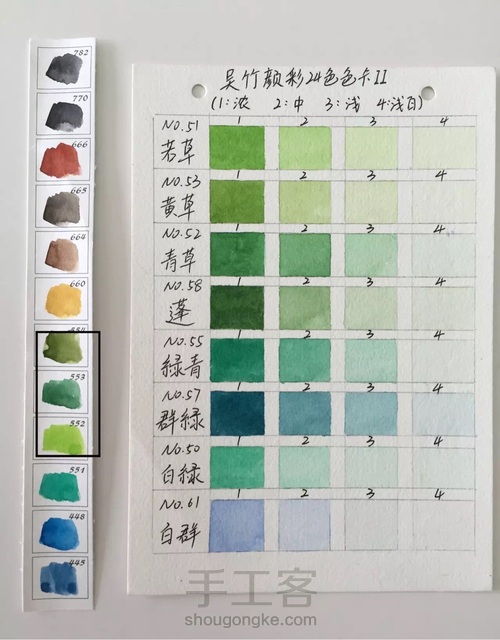 782
770
666
665
664
660
554
553
552
551
448
445
吴竹颜彩24色色卡II
(1:浓 2:中 3:浅 4:浅白)
NO.51 1 2 3 4
若草
NO.53 1 2 3 4
黄草
NO.52 1 2 3 4
青草
NO.58 1 2 3 4
蓬
NO.55 1 2 3 4
緑青
NO.57 1 2 3 4
群緑
NO.50 1 2 3 4
白緑
NO.61 1 2 3 4
白群
手工客
shougongke.com